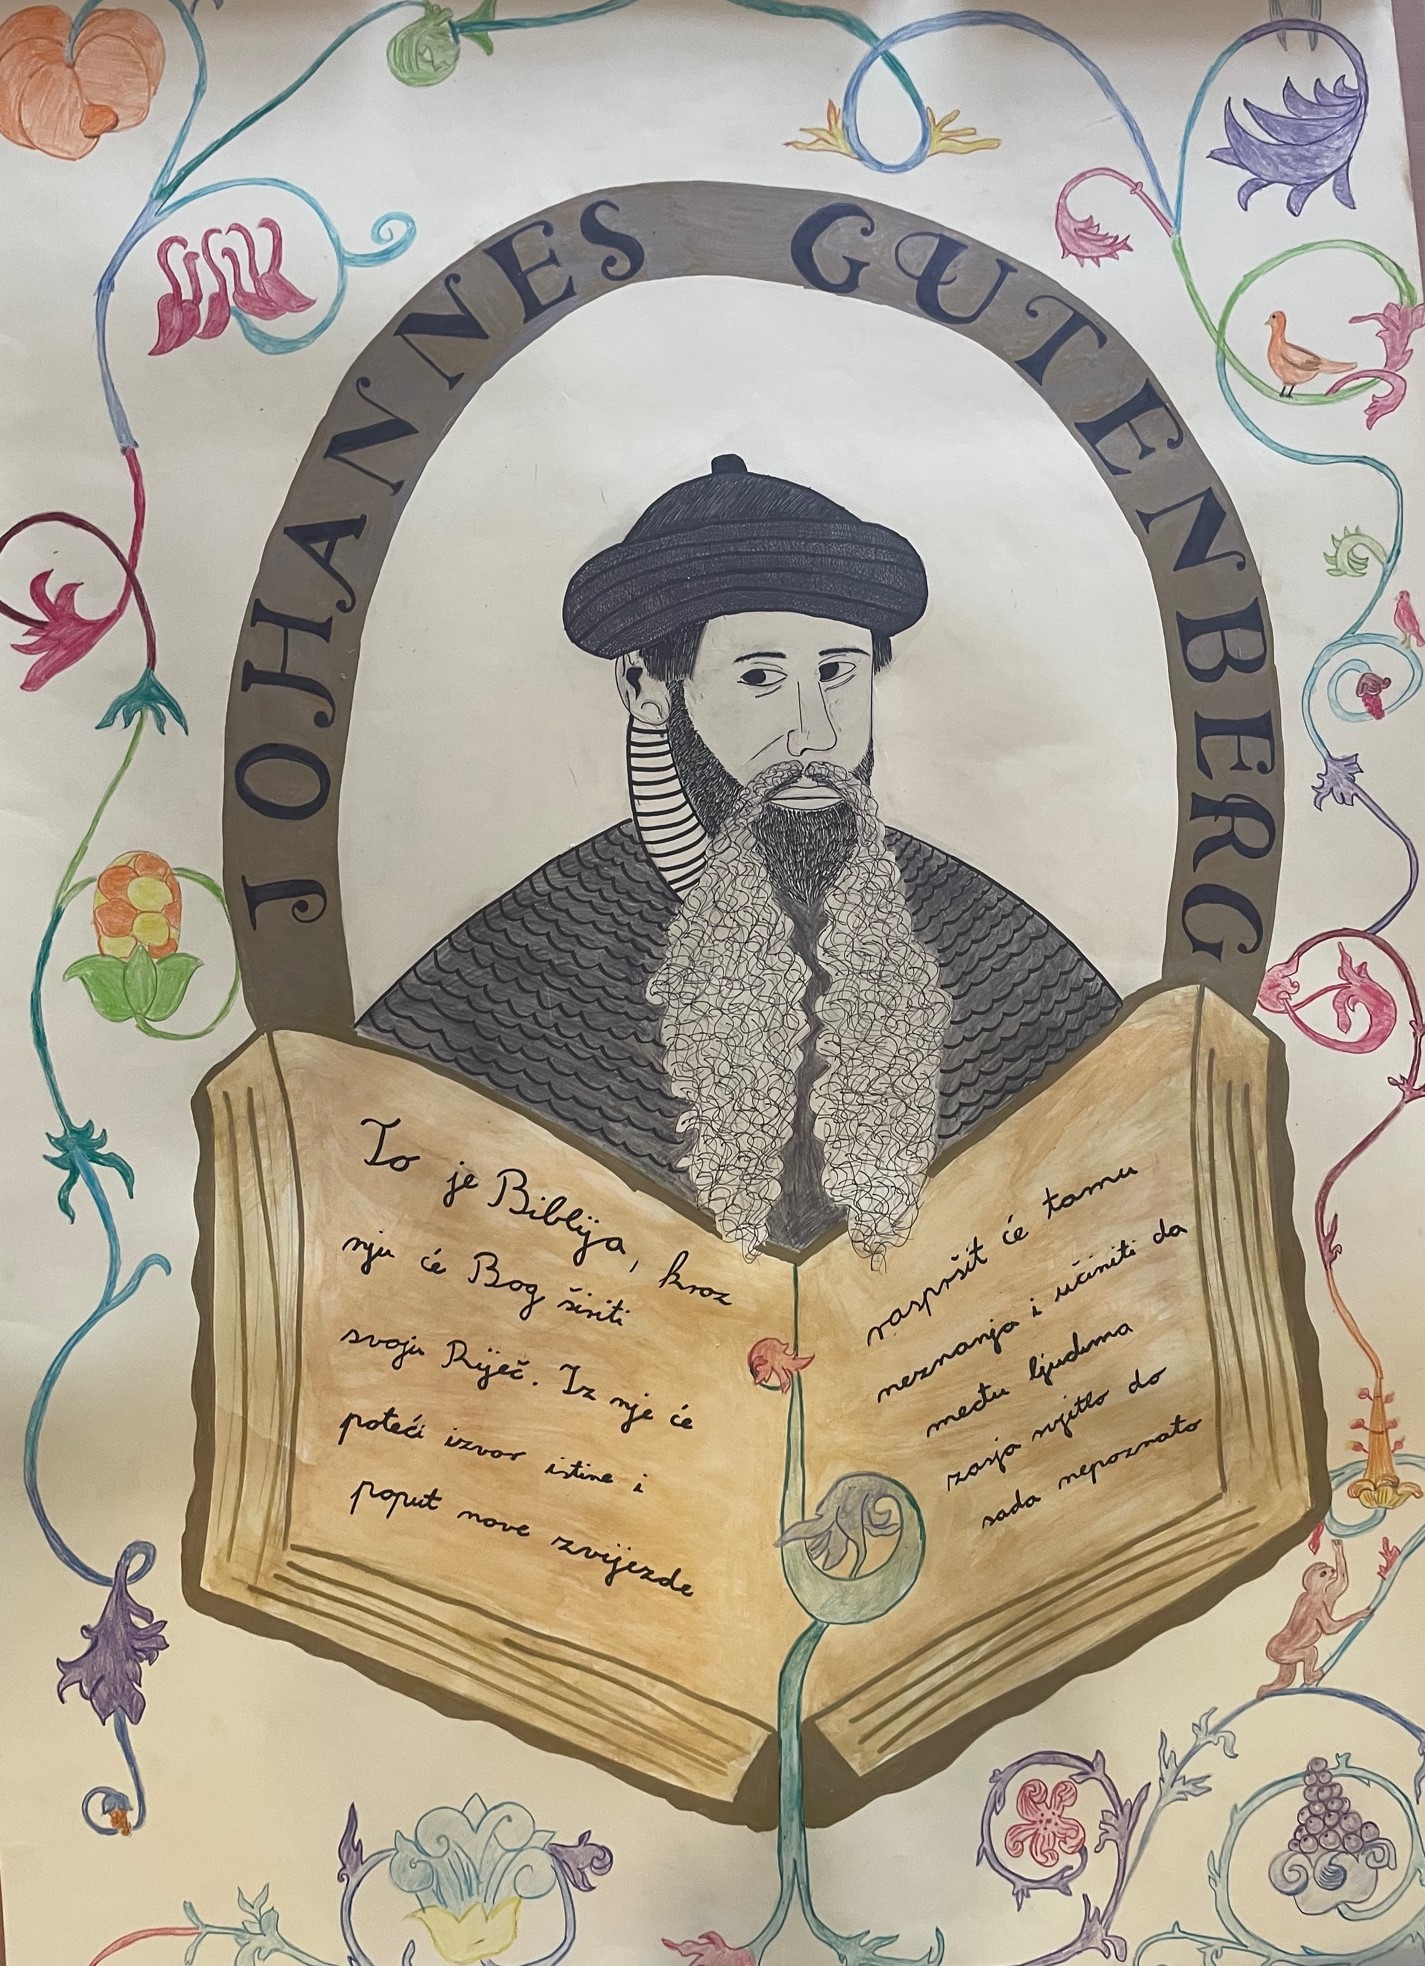 JOHANNES GUTENBERG
To je Biblija, kroz
nju će Bog širiti
svoju Riječ. Iz nje će
poteći izvor istine i
poput nove zvijezde
raspršit će tamu
neznanja i učiniti da
među ljudima
zasja svjetlo do
sada nepoznato